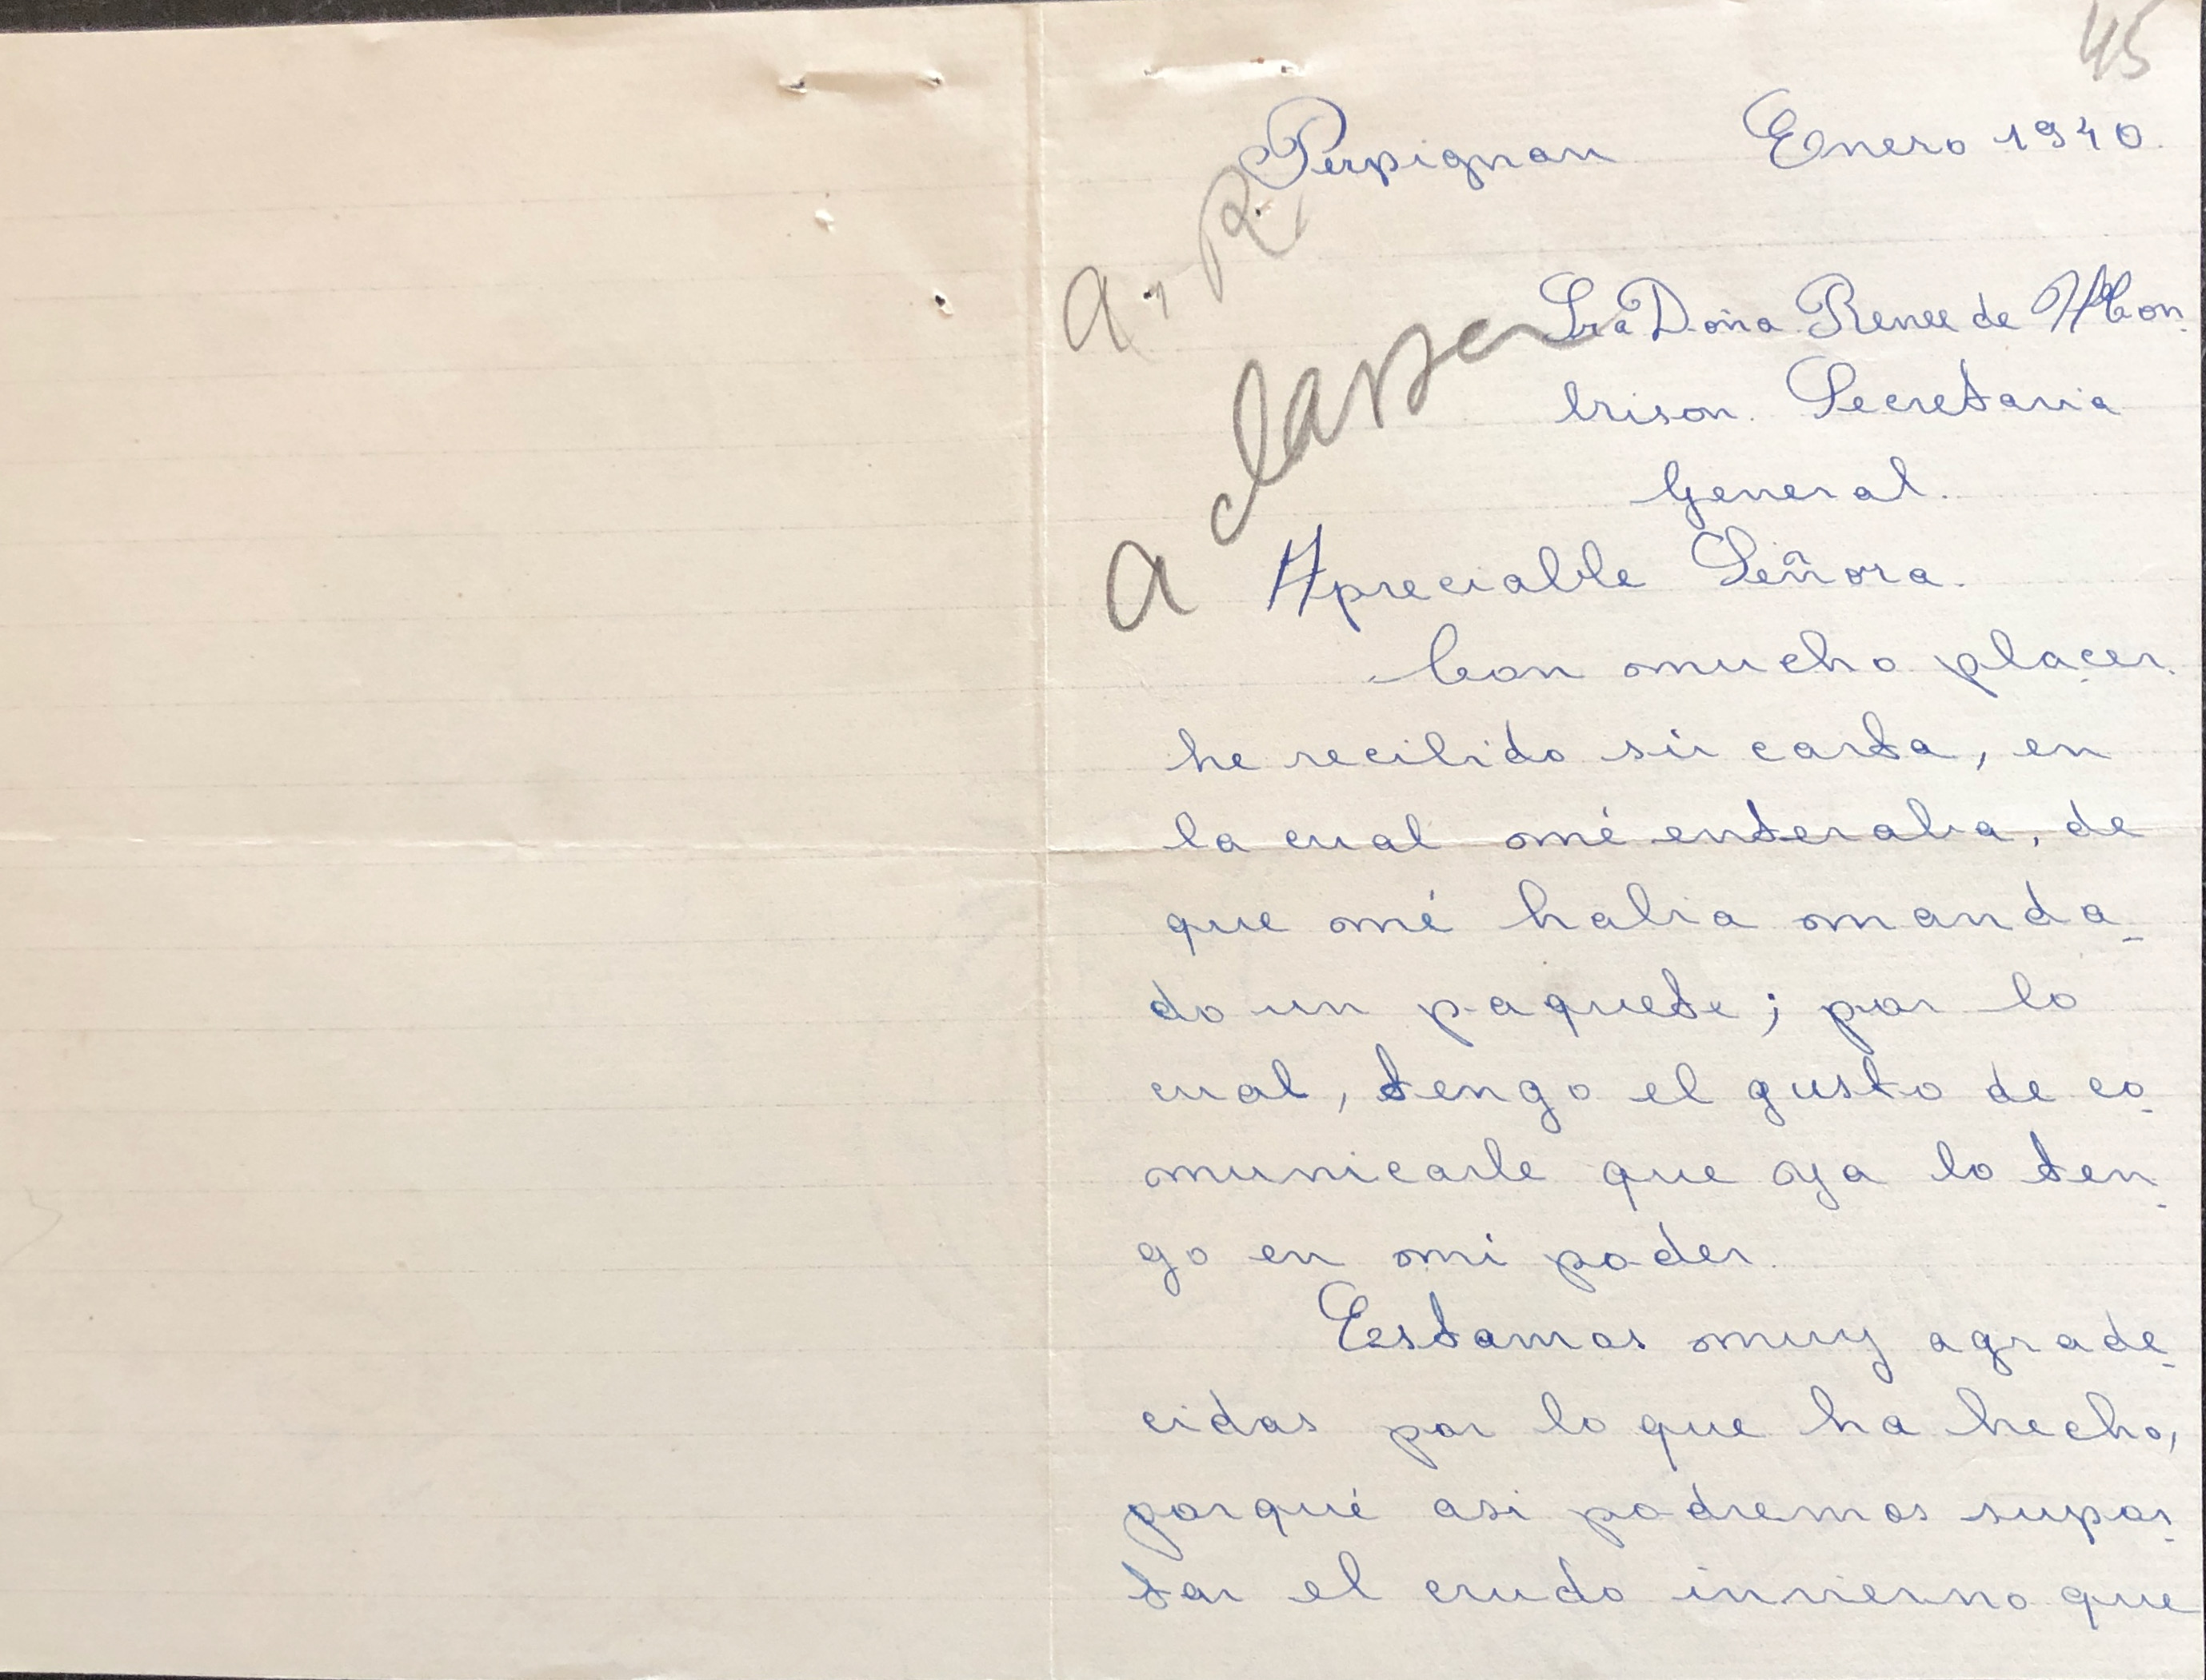 45
Perpignan Enero 1940.
A. R.
Sra Doña Renee de Mon
brison. Secretaria
General.
a classer
Apreciable Señora.
Con mucho placer
he recibido sú carta, en
la cual mé enteraba, de
que mé habia manda-
do un paquete; por lo
cual, tengo el gusto de co-
municarle que ya lo ten-
go en mi poder.
Estamos muy agrade-
cidas por lo que ha hecho,
porqué asi podremos supor-
tar el crudo invierno que